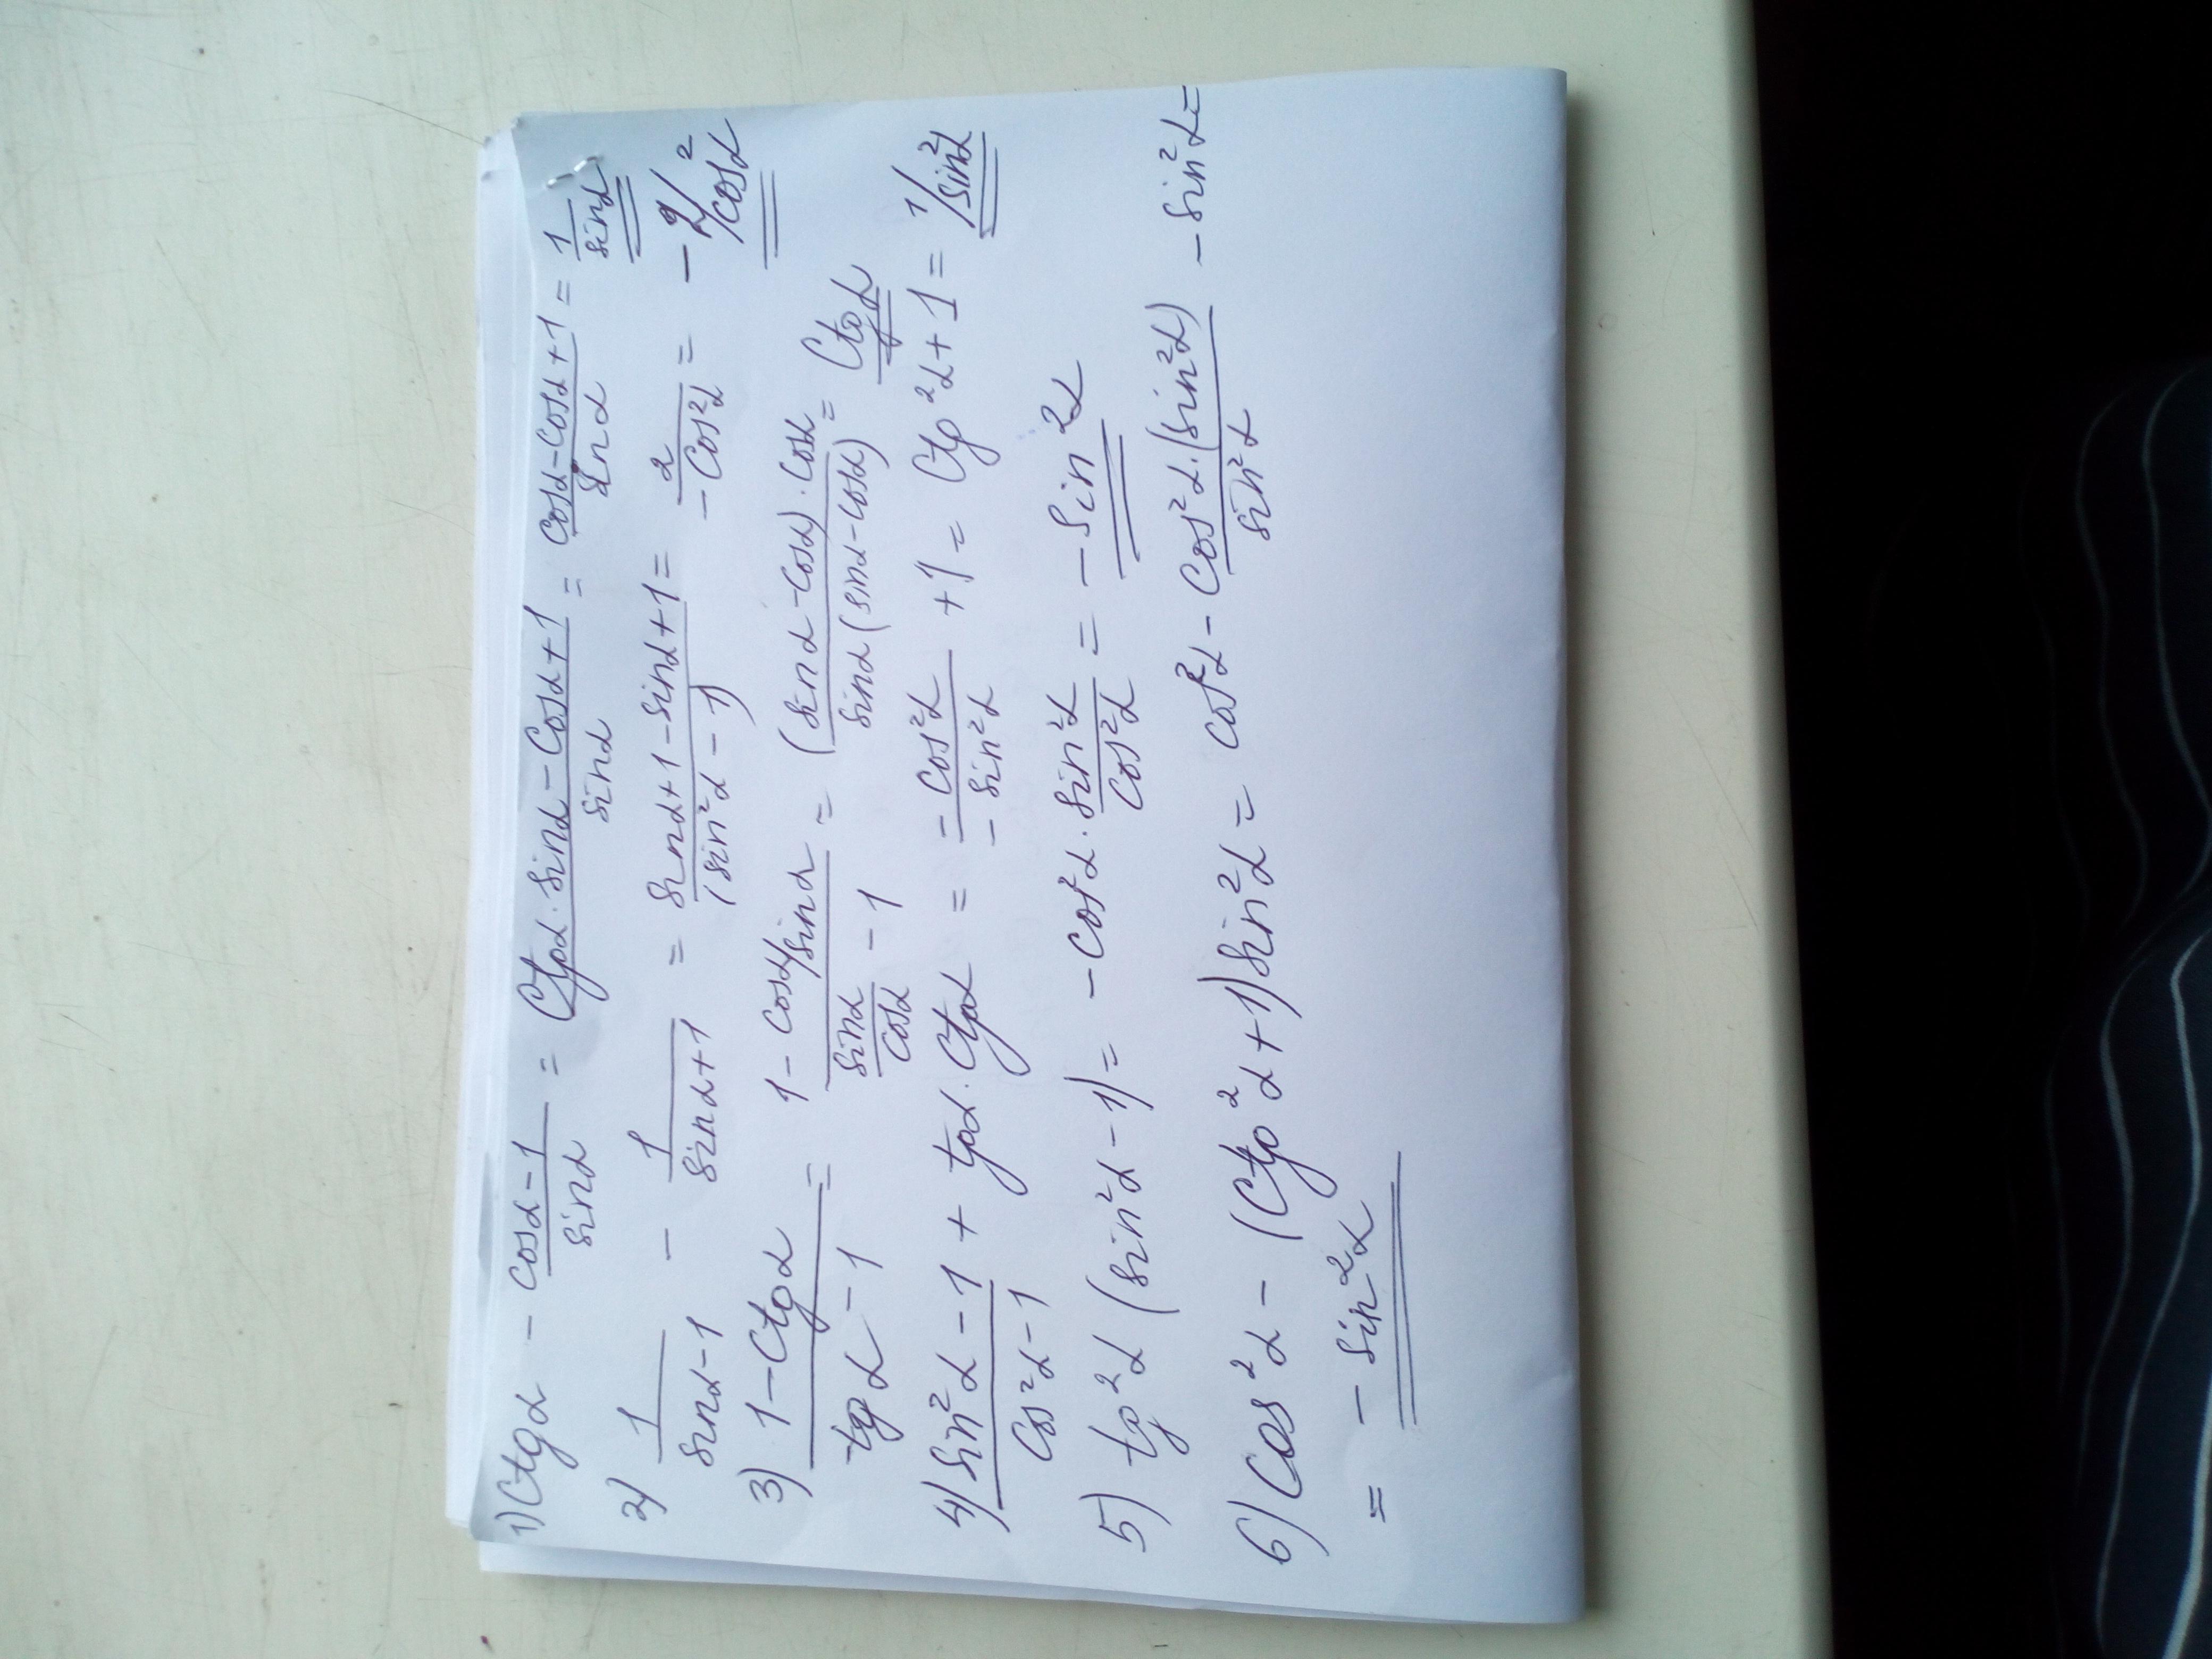 1) Ctgα - (cosα-1)/sinα = (Ctgα·sinα-Cosα+1)/sinα = (cosα-cosα+1)/sinα = 1/sinα
2) 1/(sinα-1) - 1/(sinα+1) = (sinα+1-sinα+1)/(sin²α-1) = 2/(-Cos²α) = -2/cos²α
3) (1-Ctgα)/(tgα-1) = (1-cosα/sinα)/(sinα/cosα - 1) = ((sinα-cosα)·cosα)/(sinα(sinα-cosα)) = Ctgα
4) (sin²α-1)/(cos²α-1) + tgα·Ctgα = (-cos²α)/(-sin²α) +1 = Ctg²α+1 = 1/sin²α
5) tg²α(sin²α-1) = -cos²α·sin²α/cos²α = -sin²α
6) Cos²α-(Ctg²α+1)sin²α = cos²α - (Cos²α·(sin²α))/sin²α - sin²α =
= -sin²α